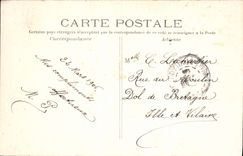 CARTE POSTALE
Certains pays étrangers n'acceptent pas la correspondance de ce côté se renseigner à la Poste
Correspondance
Adresse
23 Mars 1906
Mes compliments
affectueux
M. P.
Rue du Moulin
Dol de Bretagne
Ille et Vilaine